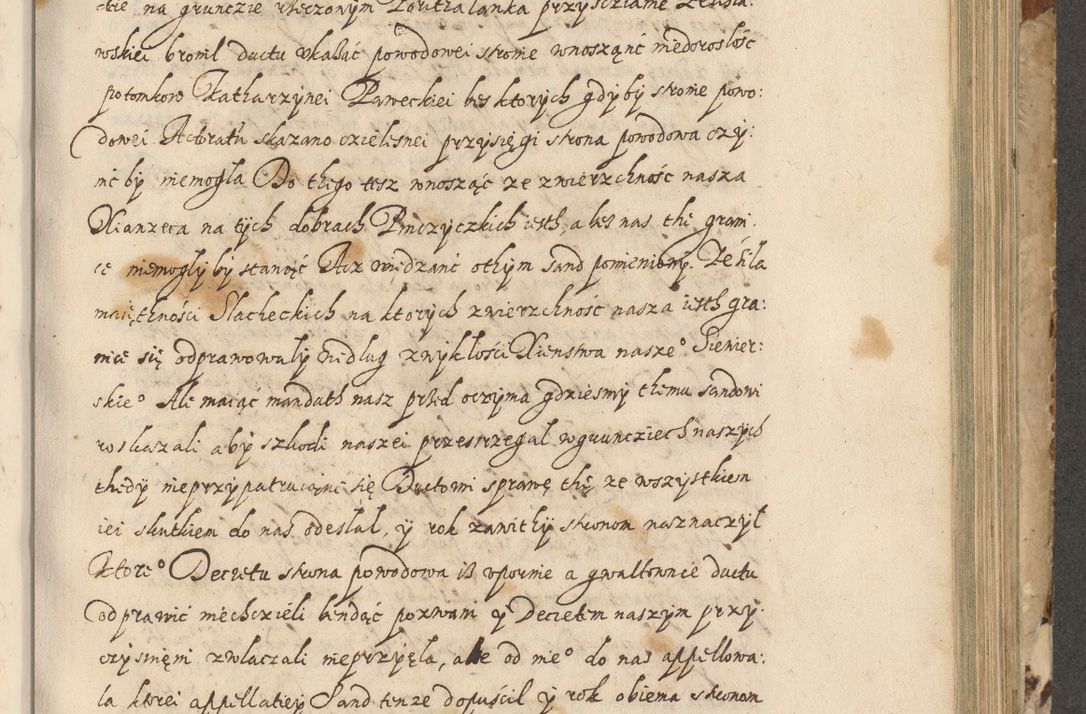 na grunczie rzeczonym przysczianie
wskiei bronil ductu vkazać powodowei stronie wnosząnć niedorosłość
potomkow Katharzynei Paweckiei bes ktorych gdyby stronie powo:
dowei Actoratu skazano czielesnei przysięgi strona powodowa czy:
nić by niemogla Do thego tesz wnosząc ze zwierzchność nasza
Xianzeca na tych dobrach Pinczyczkich iesth, a bes nas the grani:
ce niemogly by stanąć Acz widzanc othym Sand pomieniony. Ze ś:la
maięthności Slacheckich na ktorych zwierzchność nasza iesth gra:
nice się odprawowaly wedlug zwykłości Xienstwa nasze° Siewier:
skie° Ale maiąc mandath nasz przed oczyma gdziesmy themu Sandowi
roskazali aby szkodi naszei przestrzegal w grunciech naszych
thedy nieprzypatruiąncz się Ductowi sprawę thę ze wszystkiem
iei skutkiem do nas odeslal, y rok zawithy stronom naznaczył
Ktore° Decretu strona powodowa iż vpornie a gwaltownie ductu
odprawić niechczieli będąc pozwani y Decretem naszym przy:
czysnięni zwlaczali nieprzyęla, ale od nie° do nas appellowa:
la ktorei appellatiey Sand tenze dopuścil y rok obiema stronom